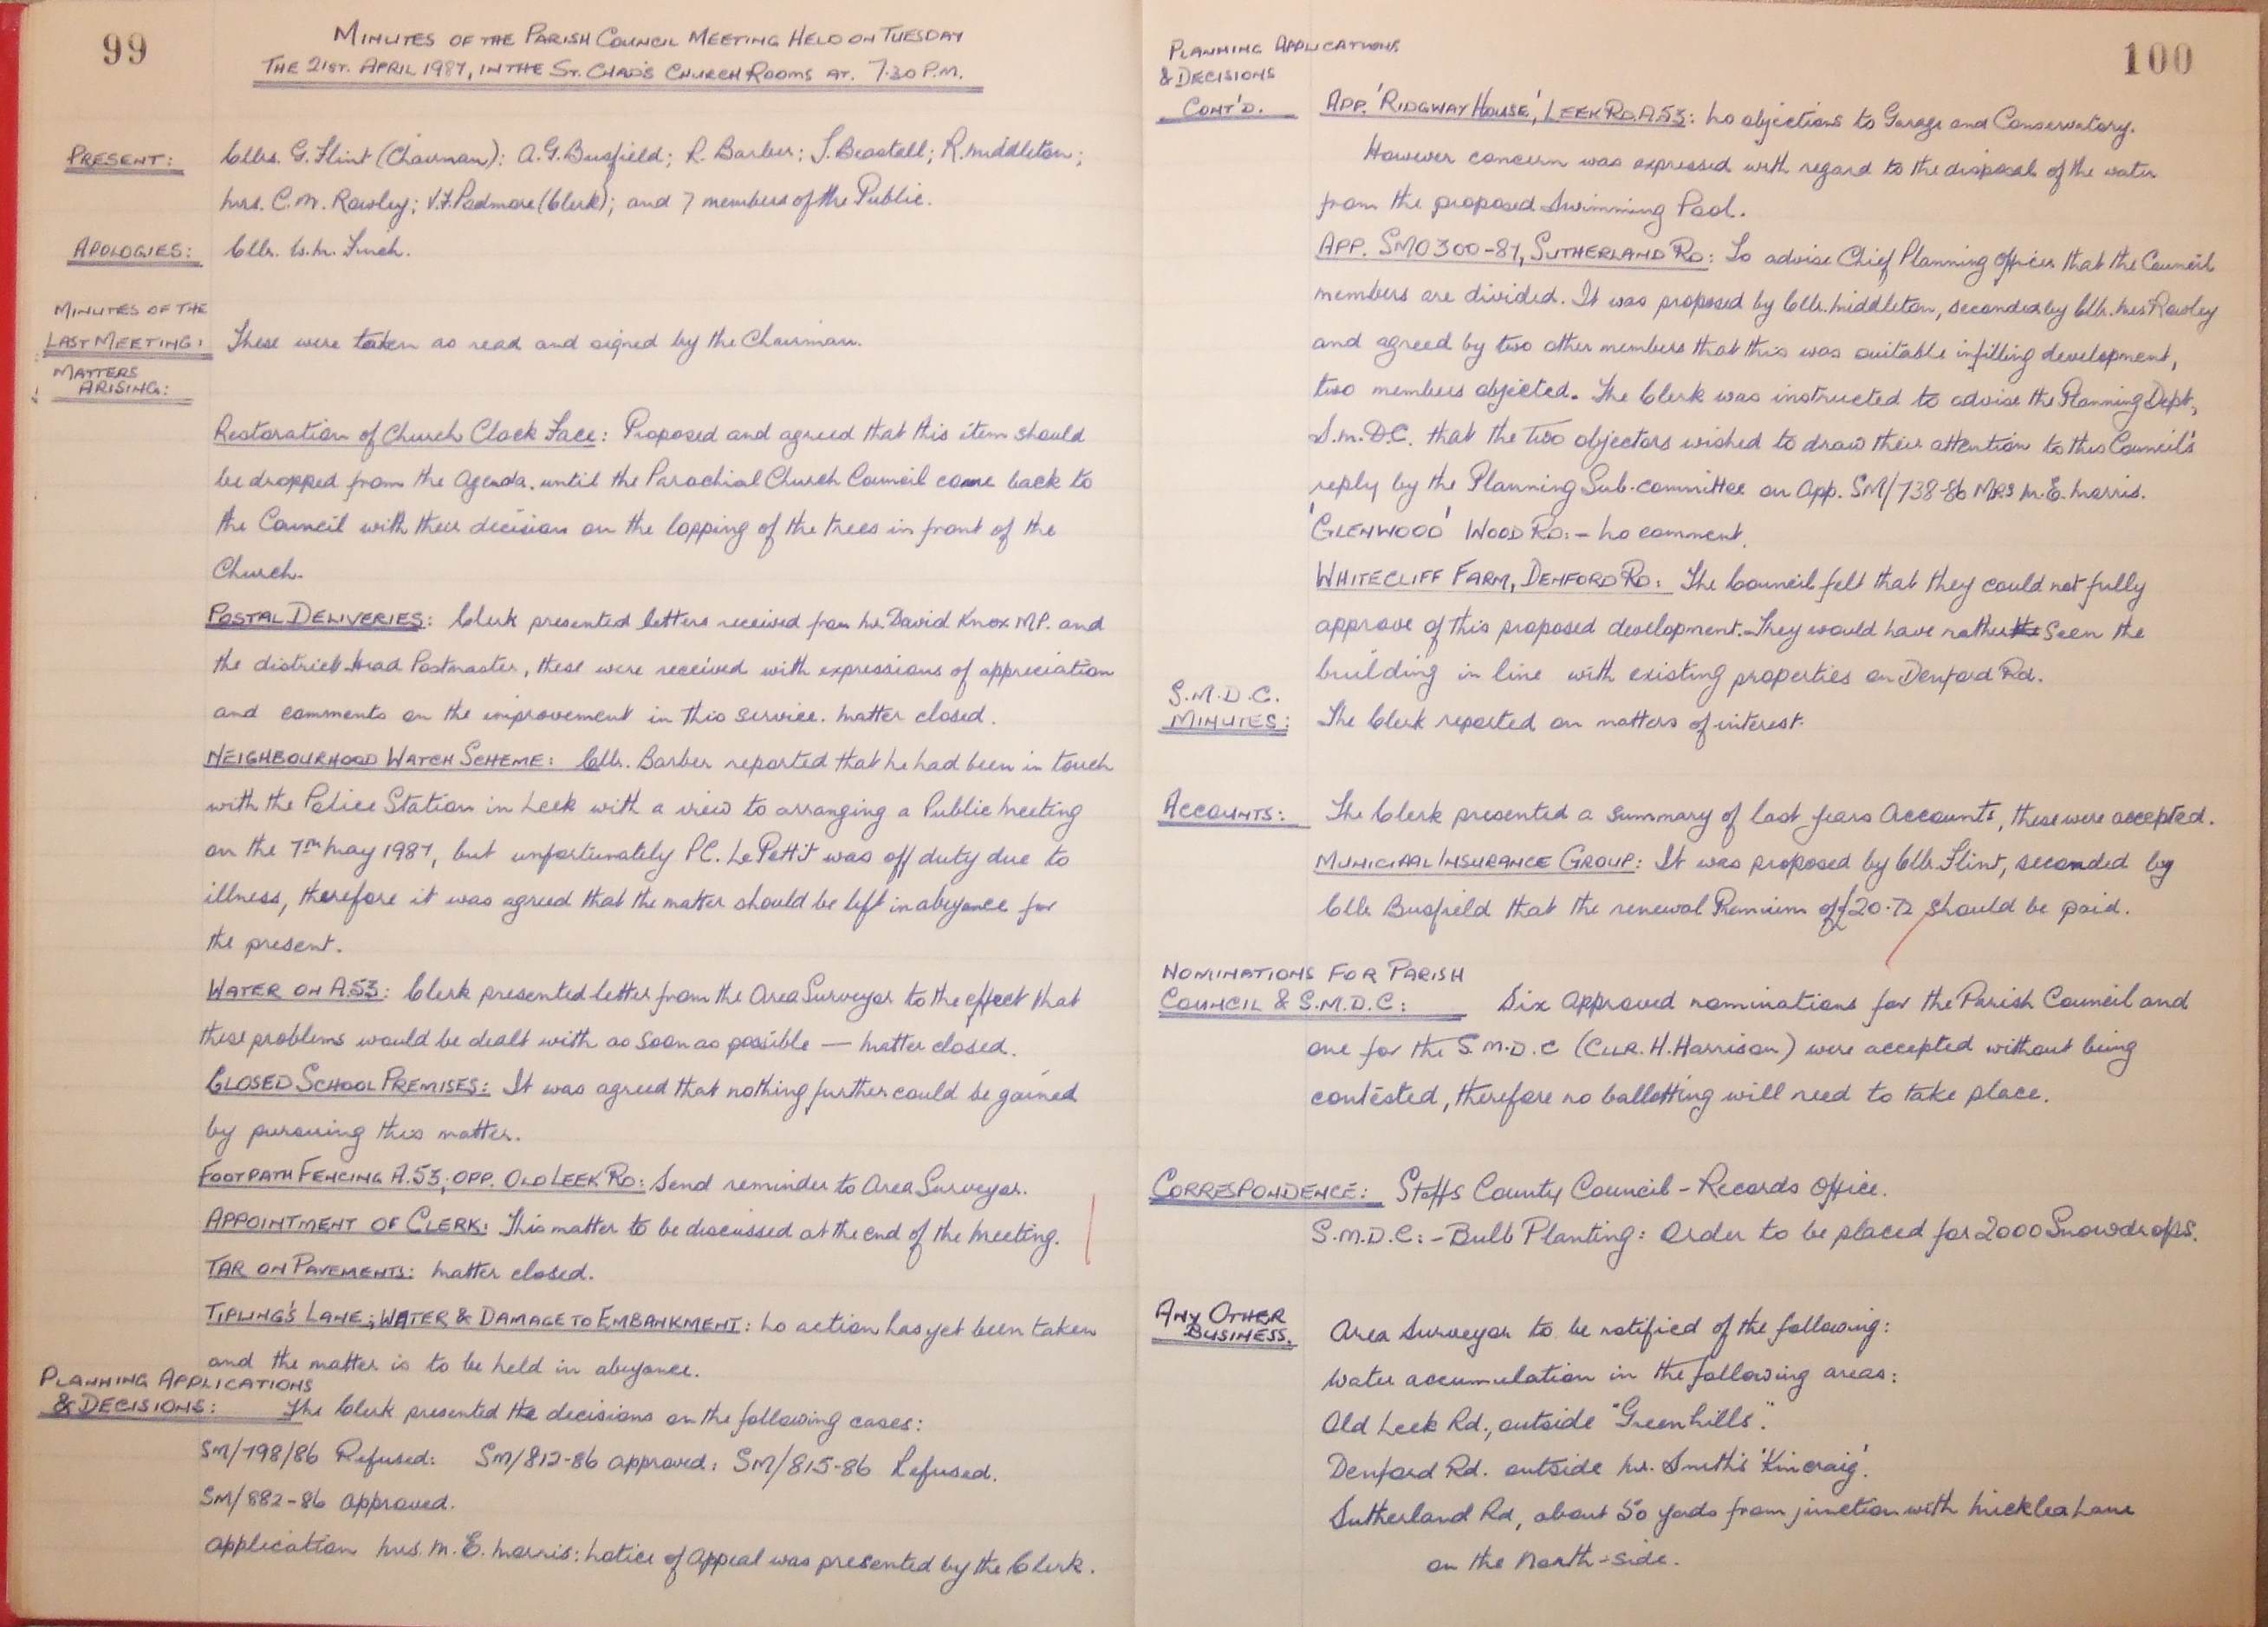 99
MINUTES OF THE PARISH COUNCIL MEETING HELD ON TUESDAY
THE 21ST. APRIL 1987, IN THE ST. CHAD'S CHURCH ROOMS AT. 7.30 P.M.
PRESENT: Cllrs. G. Flint (Chairman): A.G. Busfield; R. Barber; J. Beastall; R. Middleton;
Mrs. C.M. Rowley; V.F. Padmore (Clerk); and 7 members of the Public.
APOLOGIES: Cllr. W.M. Finch.
MINUTES OF THE
LAST MEETING: These were taken as read and signed by the Chairman.
MATTERS
ARISING:
Restoration of Church Clock Face: Proposed and agreed that this item should
be dropped from the Agenda. until the Parochial Church Council came back to
the Council with their decision on the lopping of the trees in front of the
Church.
POSTAL DELIVERIES: Clerk presented letters received from Mr. David Knox MP. and
the district Head Postmaster, these were received with expressions of appreciation
and comments on the improvement in this service. Matter closed.
NEIGHBOURHOOD WATCH SCHEME: Cllr. Barber reported that he had been in touch
with the Police Station in Leek with a view to arranging a Public Meeting
on the 7TH May 1987, but unfortunately P.C. Le Pettit was off duty due to
illness, therefore it was agreed that the matter should be left in abeyance for
the present.
WATER ON A.53: Clerk presented letter from the Area Surveyor to the effect that
these problems would be dealt with as soon as possible — Matter closed.
CLOSED SCHOOL PREMISES: It was agreed that nothing further could be gained
by pursuing this matter.
FOOTPATH FENCING A.53, OPP. OLD LEEK RD: Send reminder to Area Surveyor.
APPOINTMENT OF CLERK: This matter to be discussed at the end of the Meeting.
TAR ON PAVEMENTS: Matter closed.
TIPLING'S LANE; WATER & DAMAGE TO EMBANKMENT: No action has yet been taken
and the matter is to be held in abeyance.
PLANNING APPLICATIONS
& DECISIONS: The Clerk presented the decisions on the following cases:
SM/798/86 Refused: SM/812-86 Approved: SM/815-86 Refused.
SM/882-86 Approved.
Application Mrs. M.E. Morris: Notice of Appeal was presented by the Clerk.
100
PLANNING APPLICATIONS
& DECISIONS
CONT'D. APP. 'RIDGWAY HOUSE', LEEK RD. A.53: No objections to Garage and Conservatory.
However concern was expressed with regard to the disposal of the water
from the proposed Swimming Pool.
APP. SM0300-87, SUTHERLAND RD: To advise Chief Planning Officer that the Council
members are divided. It was proposed by Cllr. Middleton, seconded by Cllr. Mrs Rowley
and agreed by two other members that this was suitable infilling development,
two members objected. The Clerk was instructed to advise the Planning Dept,
S.M.D.C. that the Two objectors wished to draw their attention to this Council's
reply by the Planning Sub-committee on App. SM/738-86 MRS M.E. Morris.
'GLENWOOD' WOOD RD:- No comment.
WHITECLIFF FARM, DENFORD RD: The Council felt that they could not fully
approve of this proposed development. They would have rather the seen the
building in line with existing properties on Denford Rd.
S.M.D.C.
MINUTES: The Clerk reported on matters of interest.
ACCOUNTS: The Clerk presented a summary of last years Accounts, these were accepted.
MUNICIAAL INSURANCE GROUP: It was proposed by Cllr. Flint, seconded by
Cllr Busfield that the renewal Premium of £20.72 should be paid.
NOMINATIONS FOR PARISH
COUNCIL & S.M.D.C: Six Approved nominations for the Parish Council and
one for the S.M.D.C (CLLR. H. Harrison) were accepted without being
contested, therefore no ballotting will need to take place.
CORRESPONDENCE: Staffs County Council - Records Office.
S.M.D.C:- Bulb Planting: Order to be placed for 2000 Snowdrops.
ANY OTHER
BUSINESS. Area Surveyor to be notified of the following:
Water accumulation in the following areas:
Old Leek Rd., outside "Greenhills".
Denford Rd. outside Mr. Smith's 'Kincraig'.
Sutherland Rd, about 50 yards from junction with Micklea Lane
on the North-side.